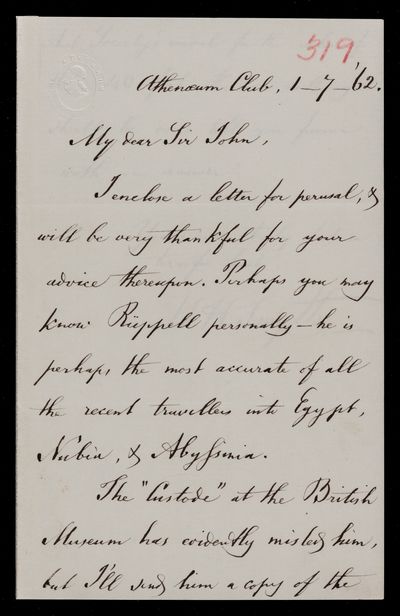 319
Athenæum Club, 1_7_'62.
My dear Sir John,
I enclose a letter for perusal, &
will be very thankful for your
advice thereupon. Perhaps you may
know Rüppell personally — he is
perhaps the most accurate of all
the recent travellers into Egypt,
Nubia, & Abyssinia.
The "Custode" at the British
Museum has evidently misled him,
but I'll send him a copy of the